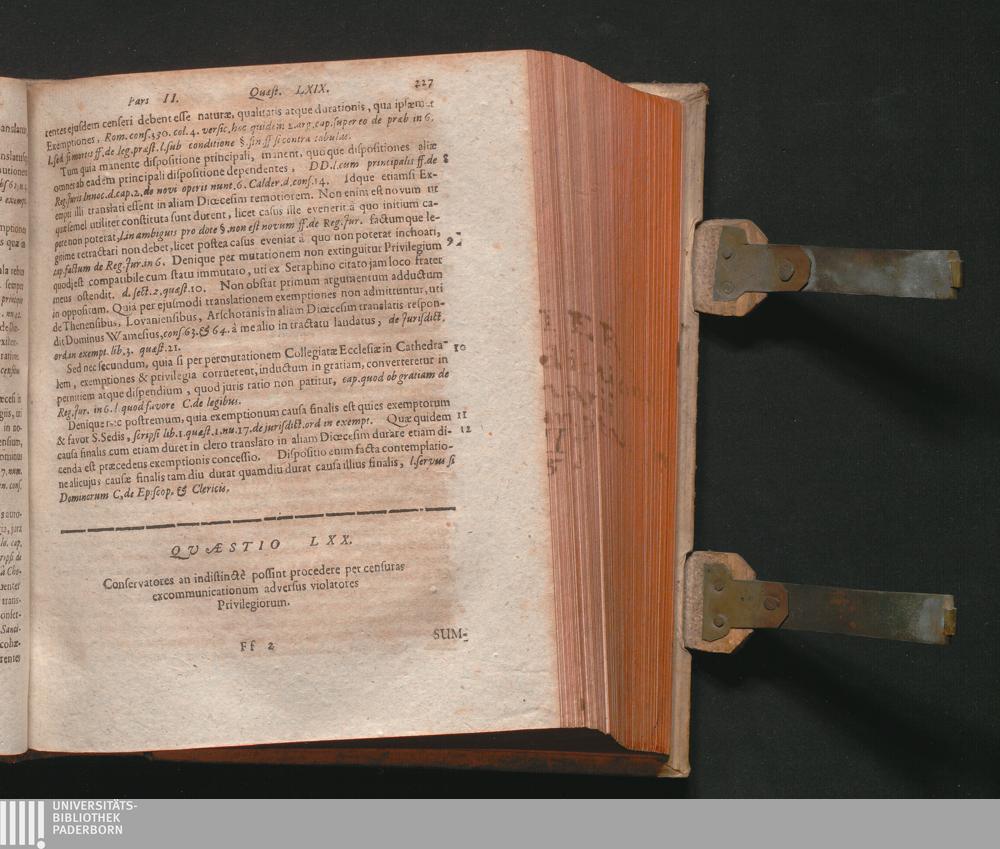 Pars II. Quæst. LXIX. 227
tentes ejusdem censeri debent esse naturæ, qualitatis atque durationis, qua ipsæmet
Exemptiones, Rom. cons. 390. col. 4. versic. hoc quidem 2. arg. cap. super eo de præb in 6.
l. sed si mortis ff. de leg. præst. l. sub conditione §. fin ff si contra tabulas.
Tum quia manente dispositione principali, manent, quoque dispositiones aliæ
omnes ab eadem principali dispositione dependentes, DD. l. cum principalis ff. de 8
Reg. juris Innoc. d. cap. 2. de novi operis nunt. 6. Calder. d. cons. 14. Idque etiamsi Ex-
empti illi translati essent in aliam Diœcesim remotiorem. Non enim est novum ut
quæ semel utiliter constituta sunt durent, licet casus ille evenerit à quo initium ca-
pere non poterat, l. in ambiguis pro dote §. non est novum ff. de Reg. Jur. factumque le-
gitime retractari non debet, licet postea casus eveniat à quo non poterat inchoari,
cap. factum de Reg. Jur. in 6. Denique per mutationem non extinguitur Privilegium 9
quod est compatibile cum statu immutato, uti ex Seraphino citato jam loco frater
meus ostendit. d. sect. 2. quæst. 10. Non obstat primum argumentum adductum
in oppositum. Quia per ejusmodi translationem exemptiones non admittuntur, uti
de Thenensibus, Lovaniensibus, Arschotanis in aliam Diœcesim translatis respon-
dit Dominus Wamesius, cons. 63. & 64. à me alio in tractatu laudatus, de Jurisdict.
ord. in exempt. lib. 3. quæst. 21.
Sed nec secundum, quia si per permutationem Collegiatæ Ecclesiæ in Cathedra- 10
lem, exemptiones & privilegia corruerent, inductum in gratiam, converteretur in
perniciem atque dispendium, quod juris ratio non patitur, cap. quod ob gratiam de
Reg. Jur. in 6. l. quod favore C. de legibus.
Denique nec postremum, quia exemptionum causa finalis est quies exemptorum
& favor S. Sedis, scripsi lib. 1. quæst. 1. nu. 17. de jurisdict. ord in exempt. Quæ quidem 11
causa finalis cum etiam duret in clero translato in aliam Diœcesim durare etiam di- 12
cenda est præcedens exemptionis concessio. Dispositio enim facta contemplatio-
ne alicujus causæ finalis tam diu durat quamdiu durat causa illius finalis, l. servus si
Dominorum C. de Episcop. & Clericis.
QUÆSTIO LXX.
Conservatores an indistinctè possint procedere per censuras
excommunicationum adversus violatores
Privilegiorum.
Ff 2 SUM-
UNIVERSITÄTS-
BIBLIOTHEK
PADERBORN